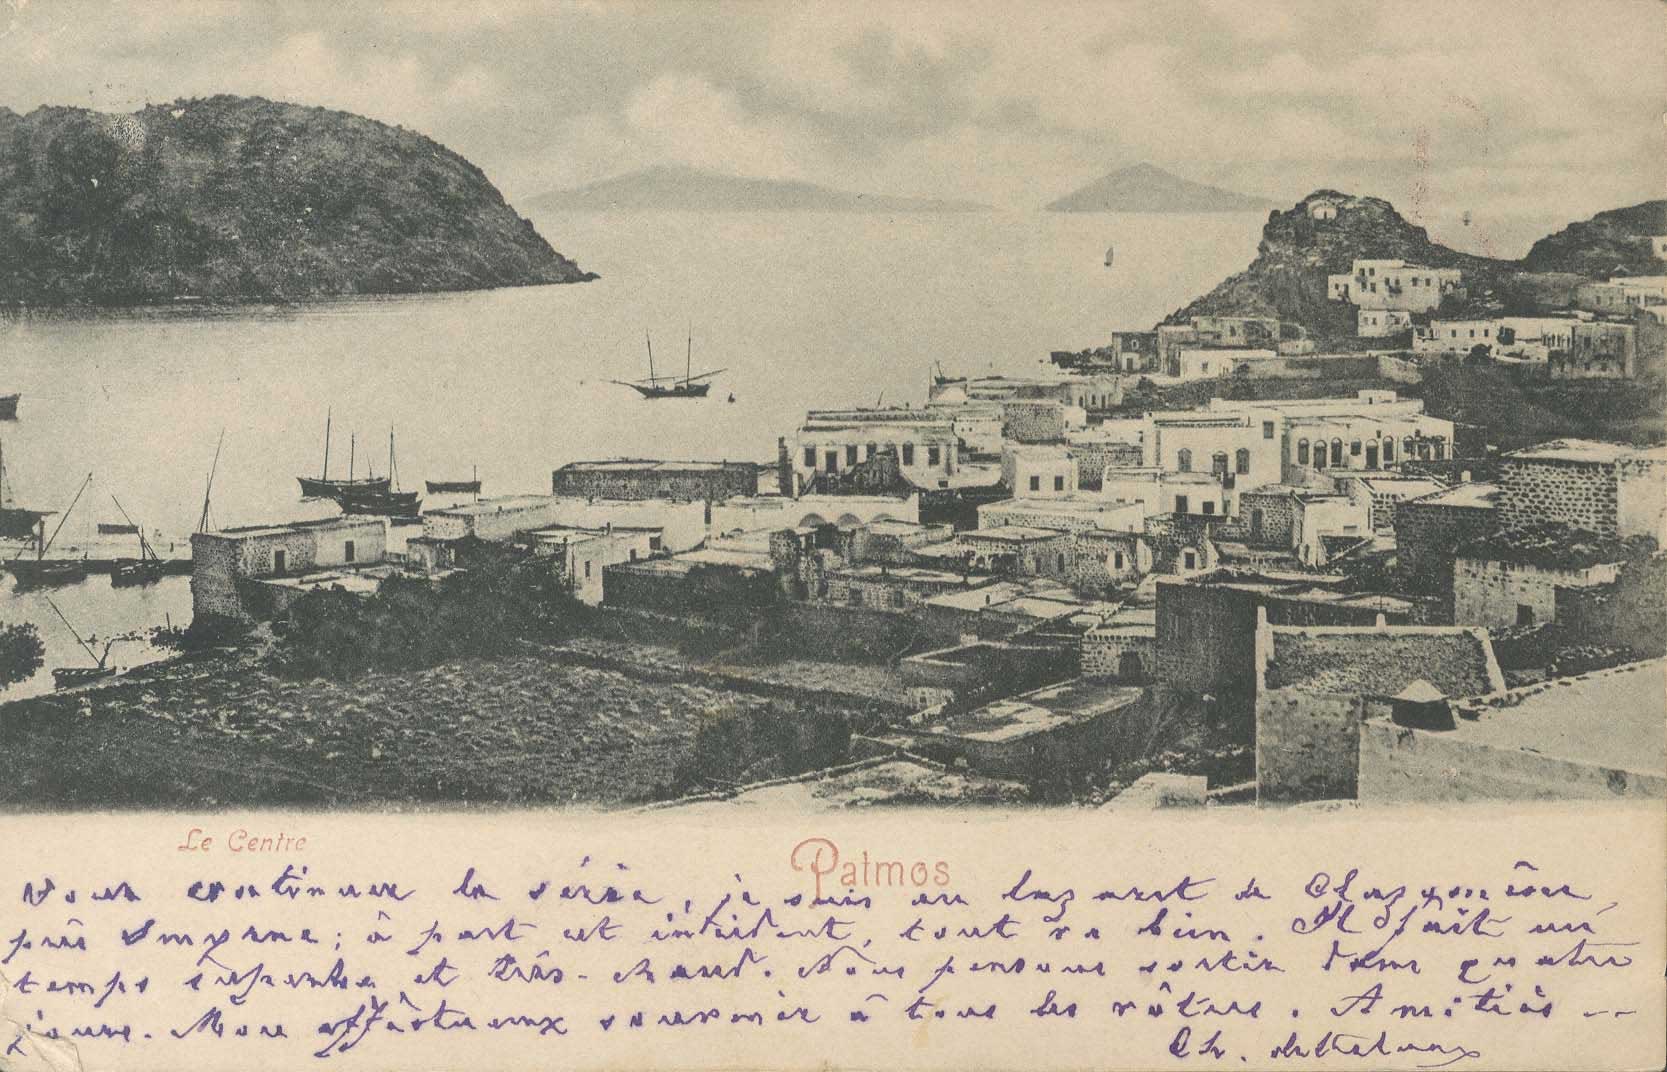 Le Centre
Patmos
Pour continuer la série, je suis au lazaret de Clazomène,
près Smyrne ; à part cet incident, tout va bien. Il fait un
temps superbe et très-chaud. Nous pensons sortir dans quatre
jours. Mon affectueux souvenir à tous les vôtres. Amitiés --
Ch.